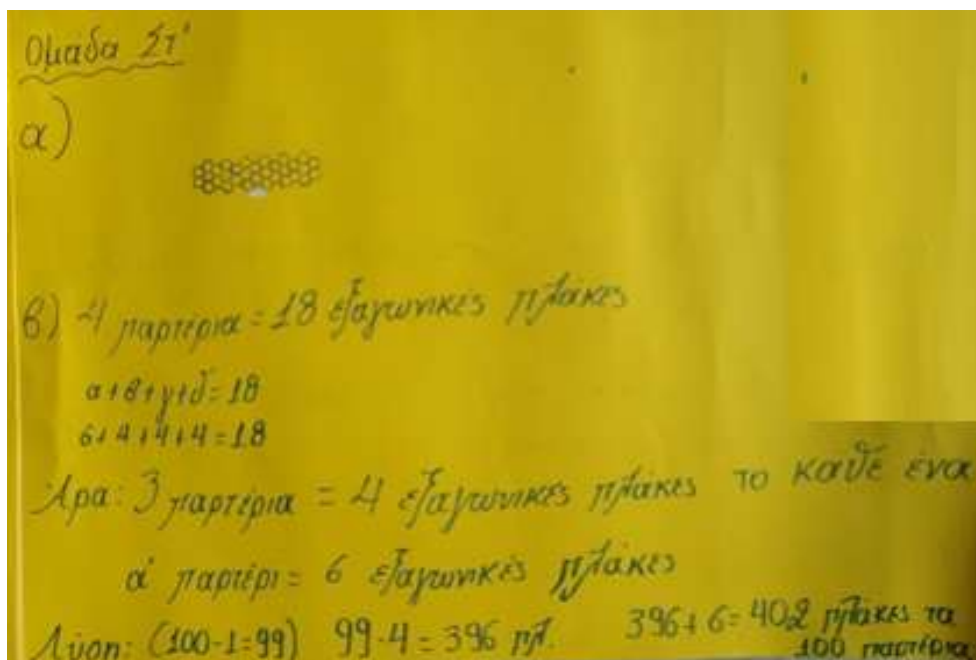 Ομάδα Στ'
α)
β) 4 παρτέρια = 18 εξαγωνικές πλάκες
α+β+γ+δ=18
6+4+4+4=18
Άρα: 3 παρτέρια = 4 εξαγωνικές πλάκες το καθε ένα
α' παρτέρι = 6 εξαγωνικές πλάκες
Λύση: (100-1=99) 99·4=396 πλ. 396+6=402 πλάκες τα
100 παρτέρια